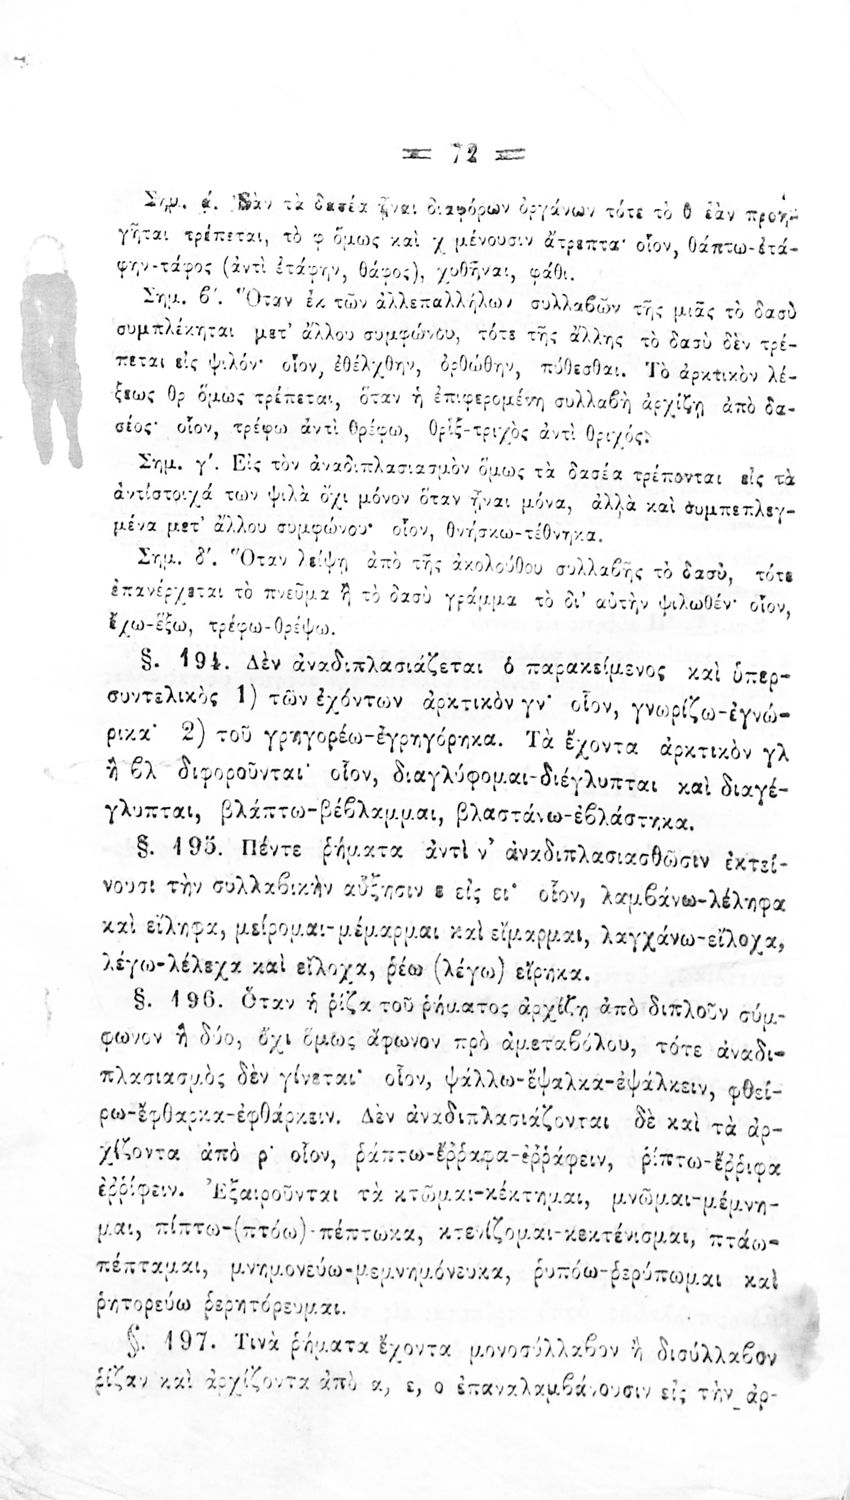 = 72 =
Σημ. ά. Ἐὰν τὰ δασέα ᾖναι διαφόρων ὀργάνων τότε τὸ θ ἐὰν προη-
γῆται τρέπεται, τὸ φ ὅμως καὶ χ μένουσιν ἄτρεπτα· οἷον, θάπτω-ἐτά-
φην-τάφος (ἀντὶ ἐτάφην, θάφος), χυθῆναι, φάθι.
Σημ. β΄. Ὅταν ἐκ τῶν ἀλλεπαλλήλων συλλαβῶν τῆς μιᾶς τὸ δασὺ
συμπλέκηται μετ' ἄλλου συμφώνου, τότε τῆς ἄλλης τὸ δασὺ δὲν τρέ-
πεται εἰς ψιλόν· οἷον, ἐθέλχθην, ὀρθώθην, πύθεσθαι. Τὸ ἀρκτικὸν λέ-
ξεως θρ ὅμως τρέπεται, ὅταν ἡ ἐπιφερομένη συλλαβὴ ἀρχίζῃ ἀπὸ δα-
σέος· οἷον, τρέφω ἀντὶ θρέφω, θρὶξ-τριχὸς ἀντὶ θριχός.
Σημ. γ΄. Εἰς τὸν ἀναδιπλασιασμὸν ὅμως τὰ δασέα τρέπονται εἰς τὰ
ἀντίστοιχά των ψιλὰ ὄχι μόνον ὅταν ᾖναι μόνα, ἀλλὰ καὶ συμπεπλεγ-
μένα μετ' ἄλλου συμφώνου· οἷον, θνήσκω-τέθνηκα.
Σημ. δ΄. Ὅταν λείψῃ ἀπὸ τῆς ἀκολούθου συλλαβῆς τὸ δασὺ, τότε
ἐπανέρχεται τὸ πνεῦμα ἢ τὸ δασὺ γράμμα τὸ δι' αὐτὴν ψιλωθέν· οἷον,
ἔχω-ἕξω, τρέφω-θρέψω.
§. 194. Δὲν ἀναδιπλασιάζεται ὁ παρακείμενος καὶ ὑπερ-
συντελικὸς 1) τῶν ἐχόντων ἀρκτικὸν γν· οἷον, γνωρίζω-ἐγνώ-
ρικα· 2) τοῦ γρηγορέω-ἐγρηγόρηκα. Τὰ ἔχοντα ἀρκτικὸν γλ
ἢ βλ διφοροῦνται· οἷον, διαγλύφομαι-διέγλυπται καὶ διαγέ-
γλυπται, βλάπτω-βέβλαμμαι, βλαστάνω-ἐβλάστηκα.
§. 195. Πέντε ῥήματα ἀντὶ ν' ἀναδιπλασιασθῶσιν ἐκτεί-
νουσι τὴν συλλαβικὴν αὔξησιν ε εἰς ει· οἷον, λαμβάνω-λέληφα
καὶ εἴληφα, μείρομαι-μέμαρμαι καὶ εἵμαρμαι, λαγχάνω-εἴλοχα,
λέγω-λέλεχα καὶ εἴλοχα, ῥέω (λέγω) εἴρηκα.
§. 196. Ὅταν ἡ ῥίζα τοῦ ῥήματος ἀρχίζῃ ἀπὸ διπλοῦν σύμ-
φωνον ἢ δύο, ὄχι ὅμως ἄφωνον πρὸ ἀμεταβόλου, τότε ἀναδι-
πλασιασμὸς δὲν γίνεται· οἷον, ψάλλω-ἔψαλκα-ἐψάλκειν, φθεί-
ρω-ἔφθαρκα-ἐφθάρκειν. Δὲν ἀναδιπλασιάζονται δὲ καὶ τὰ ἀρ-
χίζοντα ἀπὸ ρ· οἷον, ῥάπτω-ἔῤῥαφα-ἐῤῥάφειν, ῥίπτω-ἔῤῥιφα
ἐῤῥίφειν. Ἐξαιροῦνται τὰ κτῶμαι-κέκτημαι, μνῶμαι-μέμνη-
μαι, πίπτω-(πτόω)-πέπτωκα, κτενίζομαι-κεκτένισμαι, πτάω-
πέπταμαι, μνημονεύω-μεμνημόνευκα, ῥυπόω-ῥερύπωμαι καὶ
ῥητορεύω ῥερητόρευμαι.
§. 197. Τινὰ ῥήματα ἔχοντα μονοσύλλαβον ἢ δισύλλαβον
ῥίζαν καὶ ἀρχίζοντα ἀπὸ α, ε, ο ἐπαναλαμβάνουσιν εἰς τὴν ἀρ-